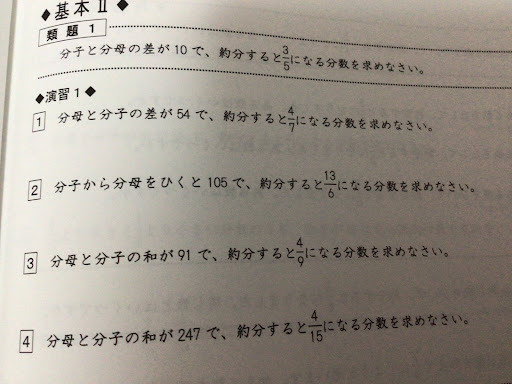 ◆基本Ⅱ◆
類題1
分子と分母の差が10で、約分すると3/5になる分数を求めなさい。
◆演習1◆
1 分母と分子の差が54で、約分すると4/7になる分数を求めなさい。
2 分子から分母をひくと105で、約分すると13/6になる分数を求めなさい。
3 分母と分子の和が91で、約分すると4/9になる分数を求めなさい。
4 分母と分子の和が247で、約分すると4/15になる分数を求めなさい。